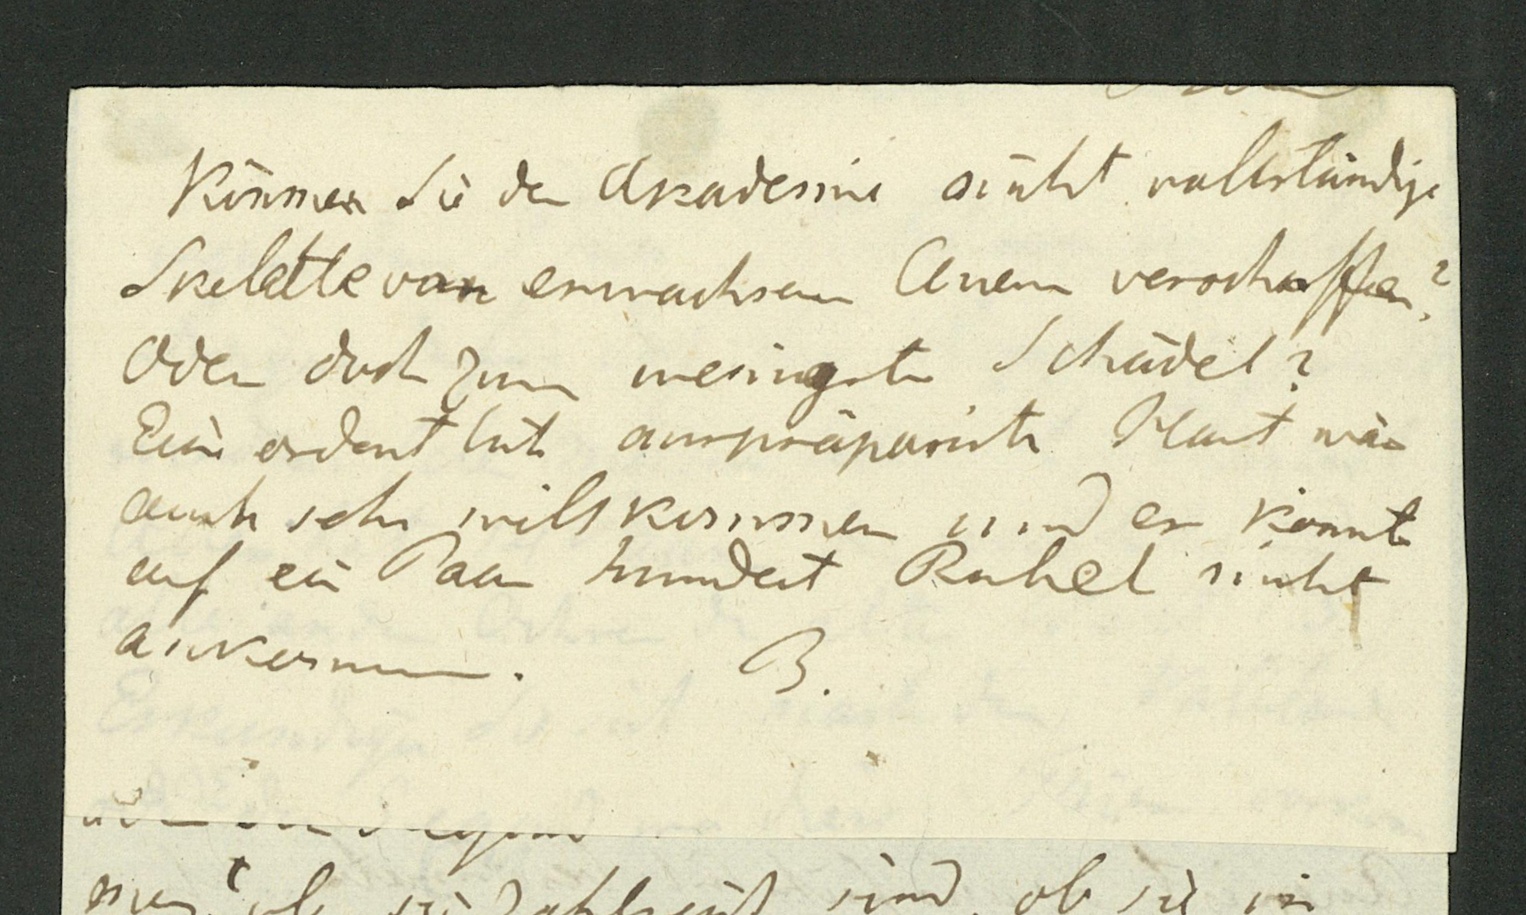 Können Sie der Akademie nicht vollständige
Skelette von erwachsenen verschaffen?
Oder doch zum wenigsten Schädel?
Eine ordentlich auspräparirte Haut wäre
auch sehr willkommen und es könnte
auf ein Paar hundert Rubel nicht
ankommen. B.
ob sie zahlreich sind, ob sie in